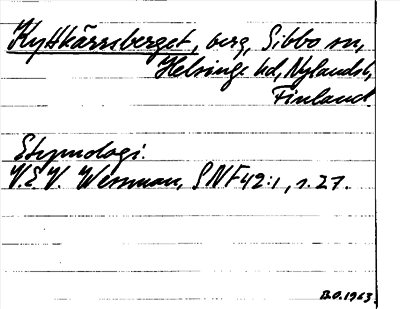 Kyttkärrsberget, berg, Sibbo sn,
Helsinge hd, Nylands l,
Finland
Etymologi.
V.E.V. Wessman, SNF 42:1, s. 27.
B.O. 1963.